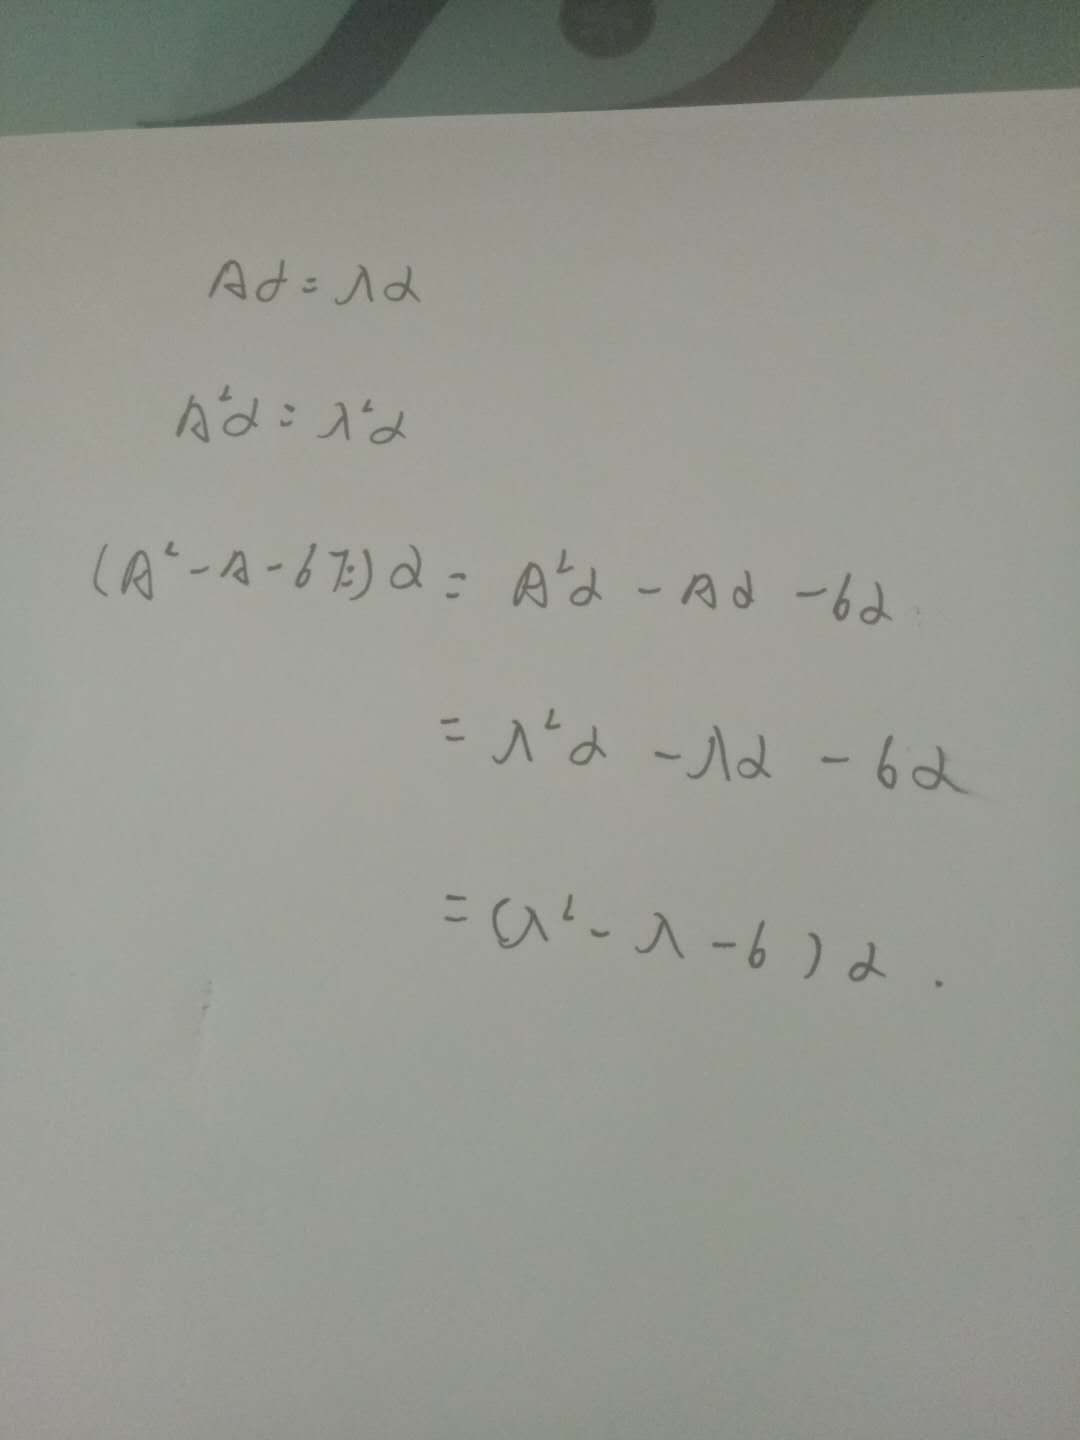 Aα=λα
A²α=λ²α
(A²-A-6E)α = A²α -Aα -6α
= λ²α -λα -6α
=(λ²-λ-6)α.